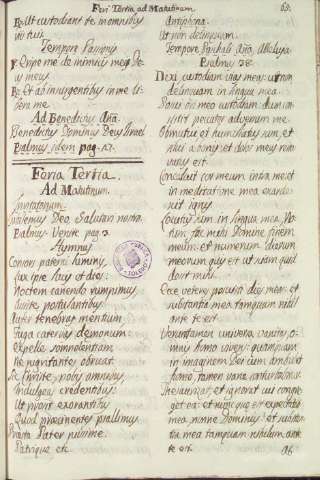 Feria Tertia, ad Matutinum. 63.
R. Ut custodiant te in omnibus
viis tuis.
Tempore Passionis
V. Eripe me de inimicis meis De-
us meus
R. Et ab insurgentibus in me li-
bera me.
Ad Benedictus Ana.
Benedictus Dominus Deus Israel
Psalmus idem pag. 27.
Feria Tertia.
Ad Matutinum.
Invitatorium.
Jubilemus Deo, Salutari nostro.
Psalmus Venite pag. 2
Hymnus
Consors paterni luminis,
Lux ipse lucis et dies:
Noctem canendo rumpimus
Assiste postulantibus
Aufer tenebras mentium
Fuga catervas dæmonum:
Expelle somnolentiam
Ne pigritantes obruat.
Sic Christe, nobis omnibus,
Indulgeas credentibus:
Ut prosit exorantibus
Quod præcinentes psallimus
Præsta Pater piissime.
Patrique etc
Antiphona.
Ut non delinquam.
Tempore Paschali Ana. Alleluya.
Psalmus 38.
Dixi custodiam vias meas: ut non
delinquam in lingua mea.
Posui ori meo custodiam: dum con-
sisteret peccator adversum me.
Obmutui et humiliatus sum, et
silui a bonis: et dolor meus reno-
vatus est.
Concaluit cor meum intra me: et
in meditatione mea exarde-
scet ignis.
Locutus sum in lingua mea: No-
tum fac mihi Domine finem
meum.
et numerum dierum
meorum quis est: ut sciam quid
desit mihi.
Ecce veteres posuisti dies meos: et
substantia mea tamquam nihil
ante te est.
Verumtamen universa vanitas: o-
mnis homo vivens.
quamquam
in imagine pertransit
homo,
Thesaurizat: et ignorat cui congre-
gabit ea.
et nunc quæ est expectatio
mea, nonne Dominus: et substan-
tia mea tamquam nihilum ante
te est.